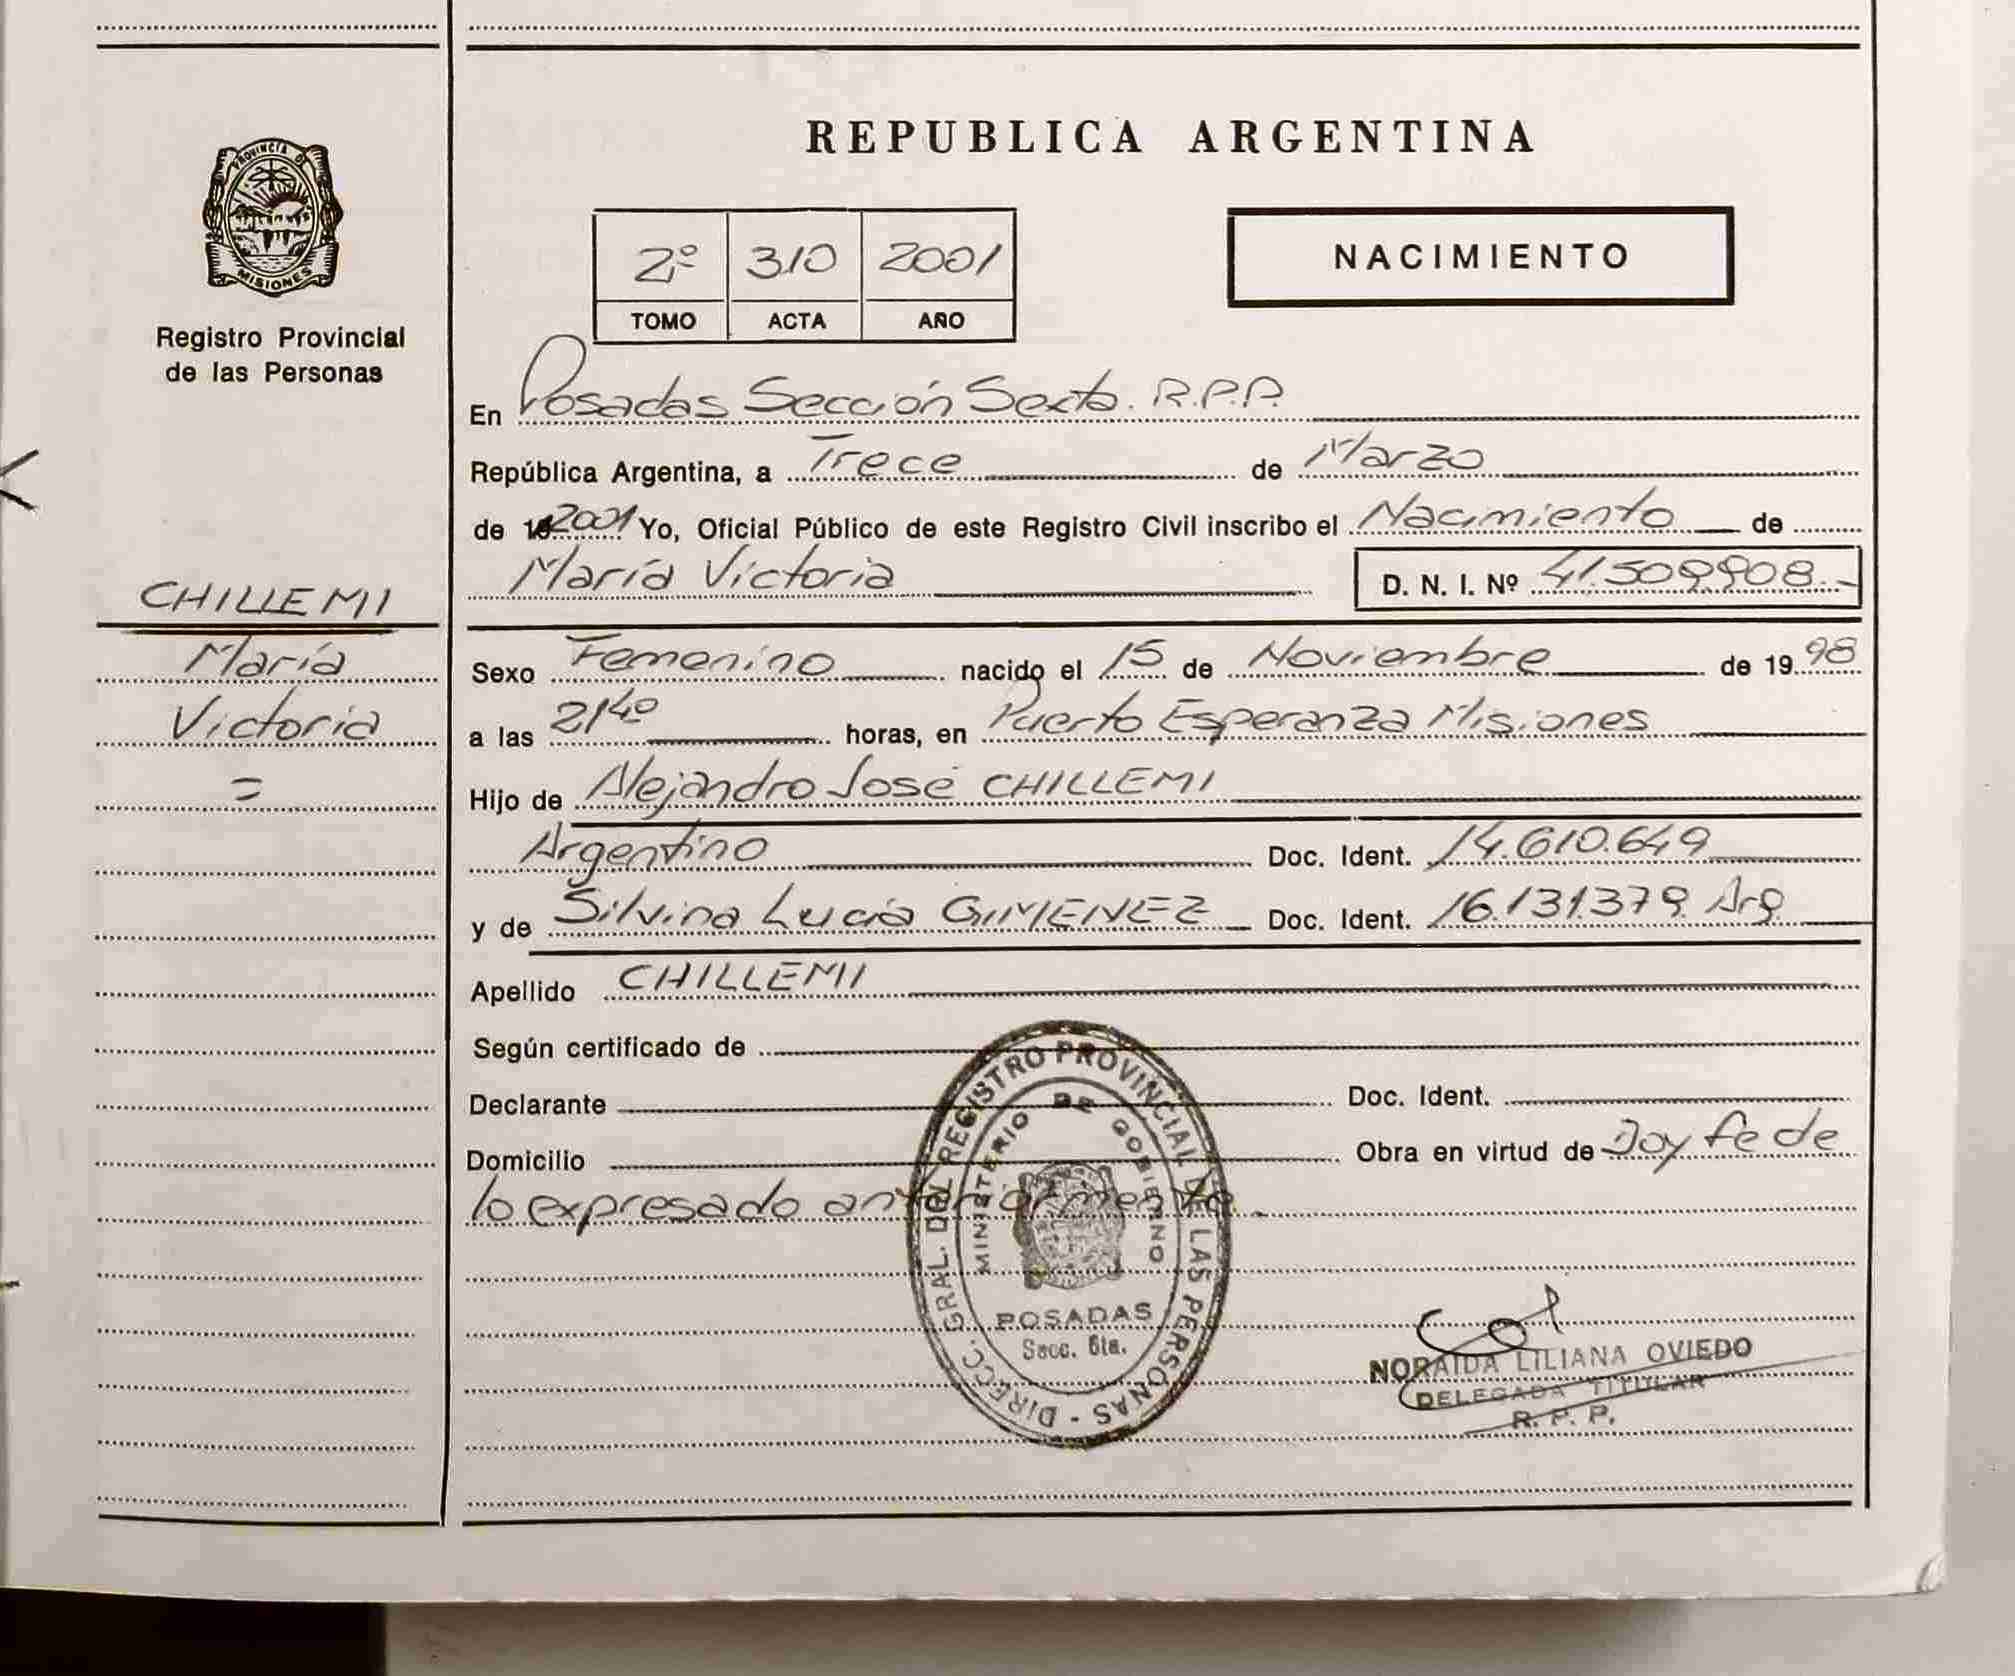 REPUBLICA ARGENTINA
PROVINCIA D
MISIONES
Registro Provincial
de las Personas
2º 310 2001
TOMO ACTA AÑO
NACIMIENTO
En Posadas Sección Sexta. R.P.P.
República Argentina, a Trece de Marzo
de 2001 Yo, Oficial Público de este Registro Civil inscribo el Nacimiento de
María Victoria D. N. I. Nº 41.509.908.-
CHILLEMI
María
Victoria
=
Sexo Femenino nacido el 15 de Noviembre de 1998
a las 21⁴⁰ horas, en Puerto Esperanza Misiones
Hijo de Alejandro José CHILLEMI
Argentino Doc. Ident. 14.610.649
y de Silvina Lucía GIMENEZ Doc. Ident. 16.131.379. Arg.
Apellido CHILLEMI
Según certificado de
Declarante Doc. Ident.
Domicilio Obra en virtud de Doy fe de
lo expresado anteriormente.
DIRECC. GRAL. DEL REGISTRO PROVINCIAL DE LAS PERSONAS -
MINISTERIO DE GOBIERNO
POSADAS
Secc. 6ta.
NORAIDA LILIANA OVIEDO
DELEGADA TITULAR
R. P. P.